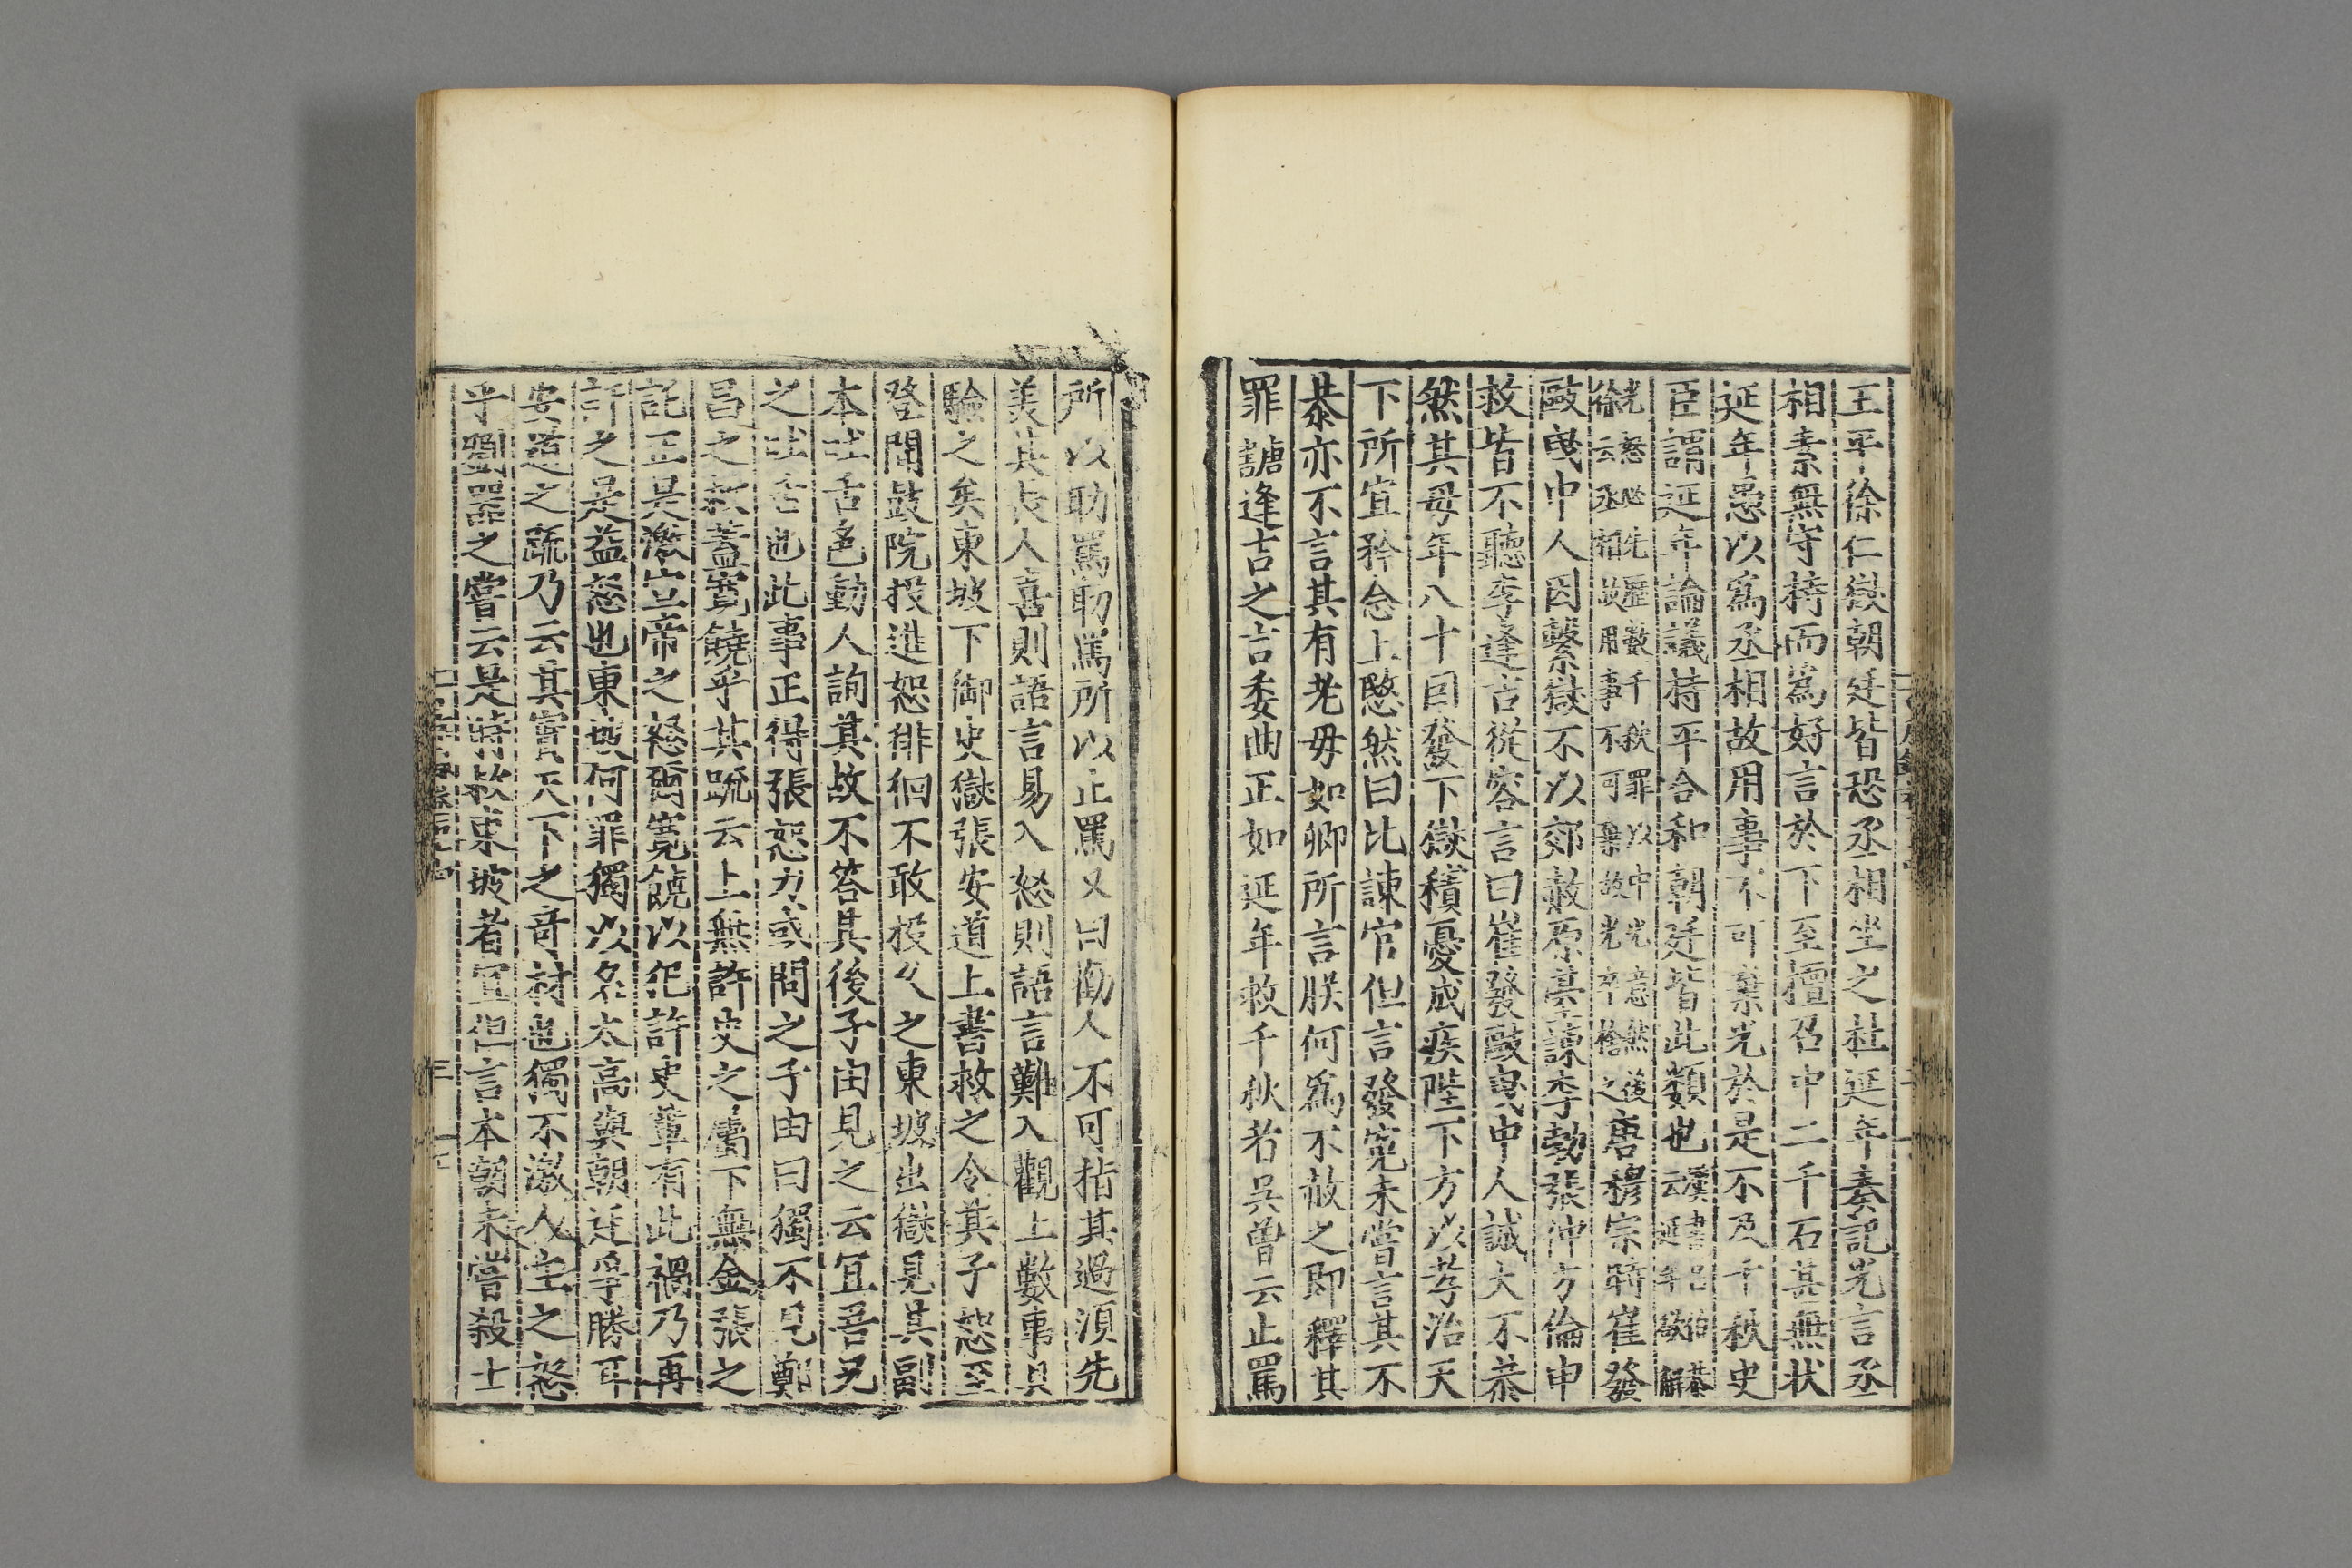 王平徐仁獄朝廷皆恐丞相坐之杜延年奏記光言丞
相素無守持而爲好言於下至擅召中二千石甚無状
延年愚以爲丞相故用事不可棄光於是不及千秋史
臣謂延年論議持平合和朝廷皆此類也漢書紀
云延年欲解
光怒必先歷數千秋罪以中光意然後
徐云丞相故用事不可棄故光卒捨之唐穆宗時崔發
毆曵中人因繫獄不以郊赦原臺諫李勃張仲方倫申
救皆不聽李逢吉從容言曰崔發毆曵中人誠大不恭
然其毋年八十囙發下獄積憂成疾陛下方以孝治天
下所宜矜念上愍然曰比諫官但言發寃未嘗言其不
恭亦不言其有老毋如卿所言朕何爲不赦之即釋其
罪謫逢吉之言委曲正如延年救千秋若吳曾云止罵
所以助罵助罵所以止罵又曰勸人不可指其過湏先
美其長人喜則語言易入怒則語言難入觀上數事具
驗之矣東坡下御史獄張安道上書救之令其子恕至
登聞鼓院投進恕徘徊不敢投久之東坡出獄見其副
本吐舌色動人詢其故不答其後子由見之云冝吾兄
之吐舌也此事正得張恕力或問之子由曰獨不見鄭
昌之救蓋寛饒乎其䟽云上無許史之屬下無金張之
託正是激宣帝之怒爾寛饒以犯許史輩有此禍乃再
訐之是益怒也東坡何罪獨以名太高與朝廷爭勝耳
安道之䟽乃云其實天下之奇材也獨不激人主之怒
乎劉器之嘗云是時救東坡者冝但言本朝未嘗殺士